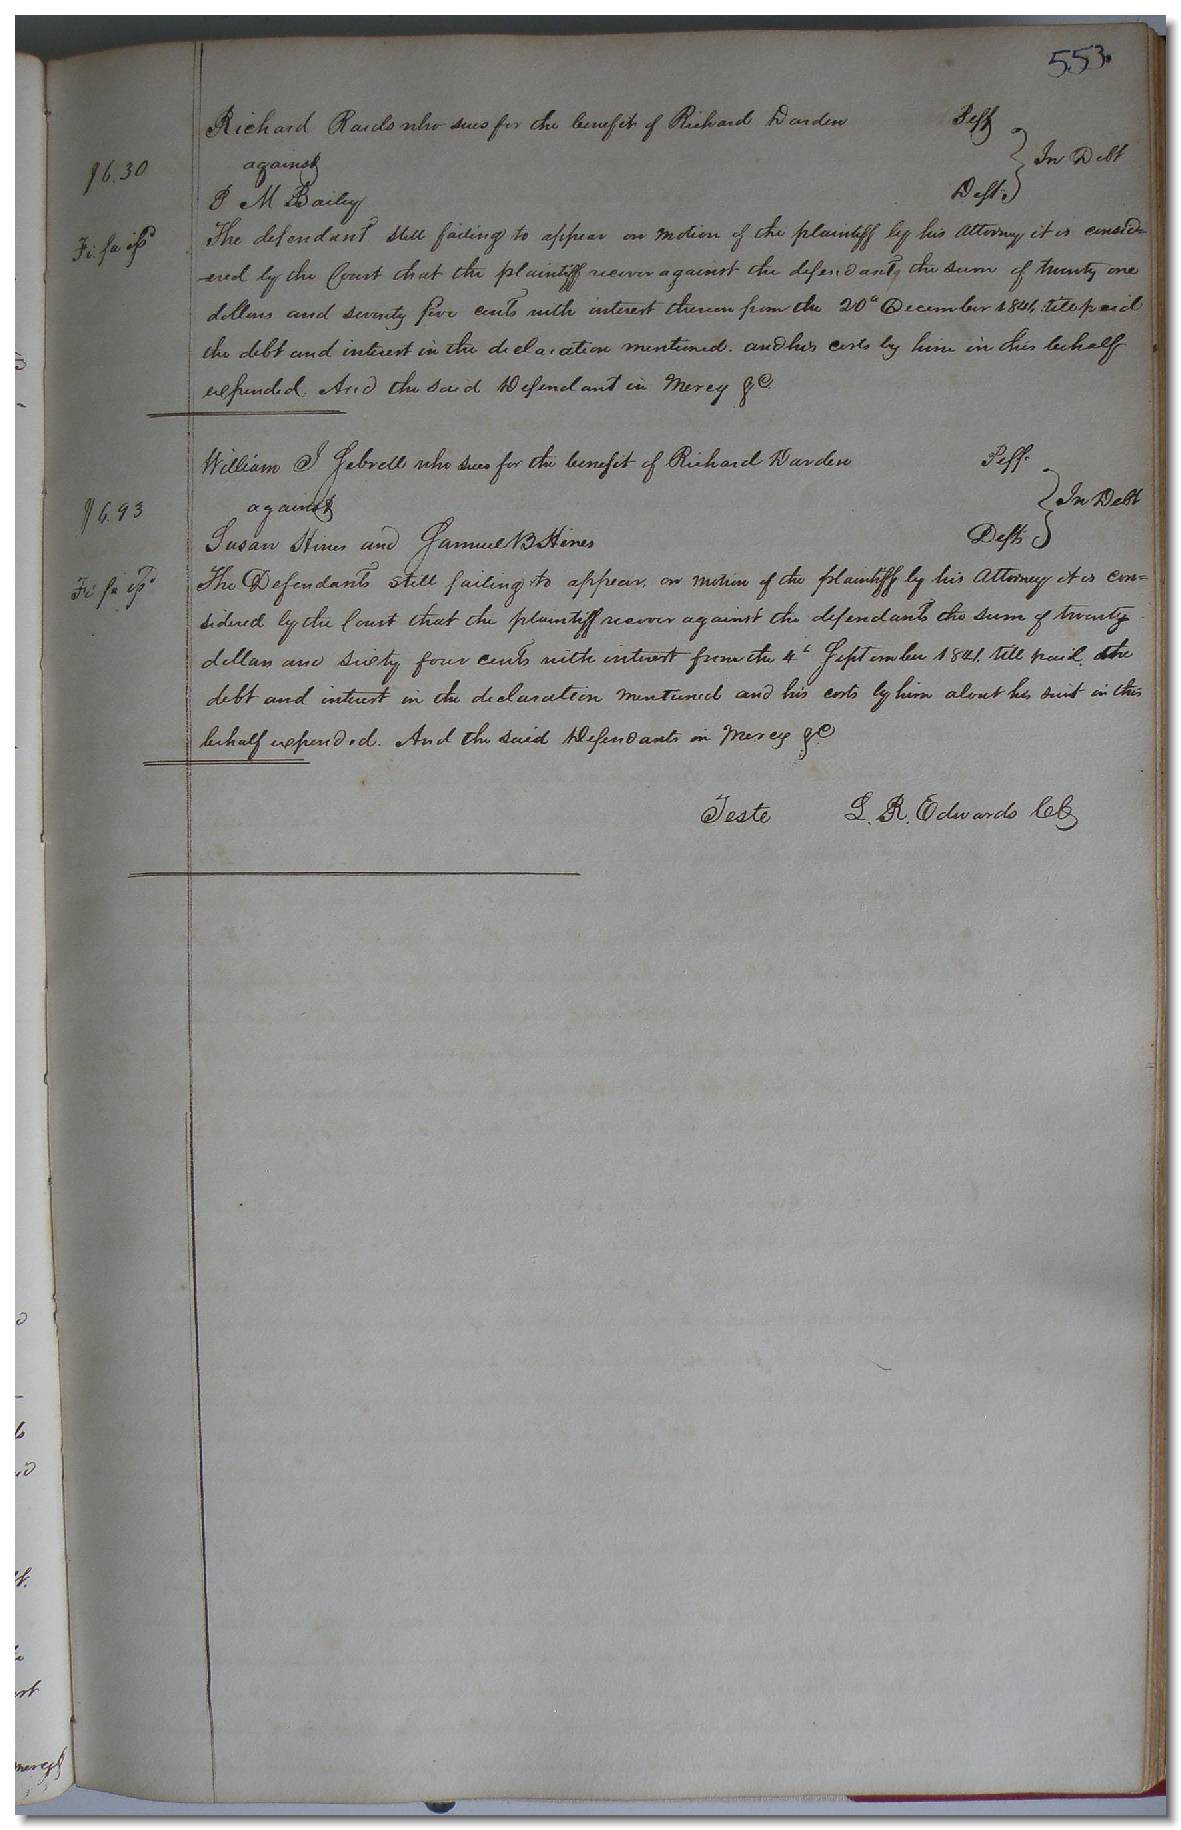 553.
Richard Rawls who sues for the benefit of Richard Darden Plff
$6.30 against In Debt
P M Bailey Deft.
Fi. fa issd The defendant still failing to appear on motion of the plaintiff by his Attorney it is consid=
ered by the Court that the plaintiff recover against the defendant, the sum of twenty one
dollars and seventy five cents with interest thereon from the 20th December 1841, till paid
the debt and interest in the declaration mentioned. and his costs by him in this behalf
expended And the said Defendant in Mercy &c
William J who sues for the benefit of Richard Darden Plff.
$6.93 against In Debt
Susan Hines and Samuel B Hines Defts
Fi fa issd The Defendants still failing to appear, on motion of the plaintiff by his Attorney it is con=
sidered by the Court that the plaintiff recover against the defendants the sum of twenty
dollars and sixty four cents with interest from the 4th September 1841. till paid, the
debt and interest in the declaration mentioned and his costs by him about his suit in this
behalf expended. And the said Defendants in Mercy &c
Teste L. R. Edwards Clk